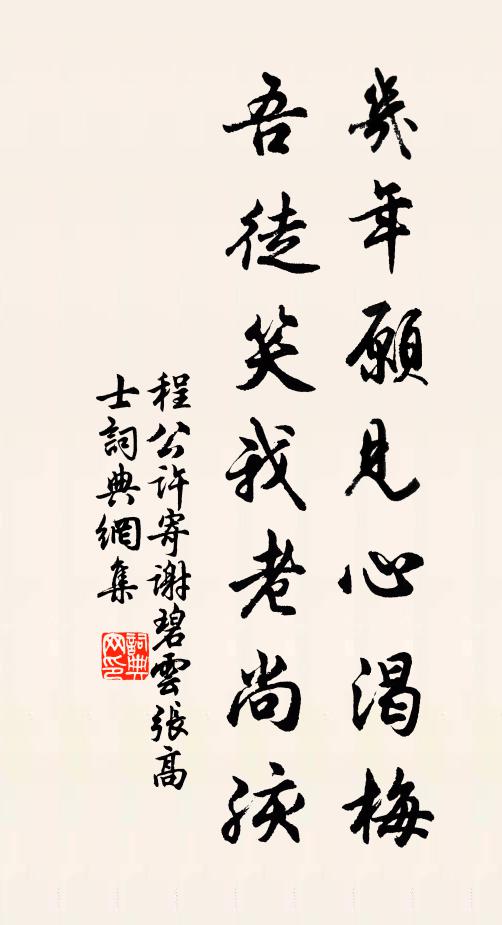 幾年願見心渴梅
吾徒笑我老尚孩
程公許寄謝碧雲張高
士詞典網集
詞典網印